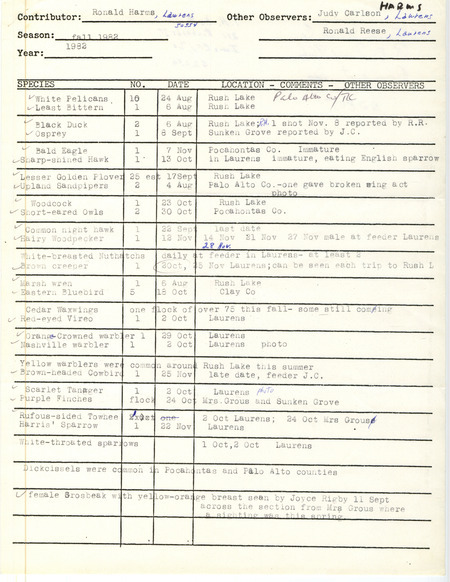 HARMS
Contributor: Ronald Harms, Laurens Other Observers: Judy Carlson, Laurens
50554
Season: fall 1982 Ronald Reese, Laurens
Year: 1982
SPECIES NO. DATE LOCATION - COMMENTS - OTHER OBSERVERS
White Pelicans 18 24 Aug Rush Lake Palo Alto Co/TCK
Least Bittern 1 6 Aug Rush Lake
Black Duck 2 6 Aug Rush Lake; 1 shot Nov. 8 reported by R.R.
Osprey 1 8 Sept Sunken Grove reported by J.C.
Bald Eagle 1 7 Nov Pocahontas Co. Immature
Sharp-shinned Hawk 1 13 Oct in Laurens immature, eating English sparrow
Lesser Golden Plover 25 est 17Sept Rush Lake
Upland Sandpipers 2 4 Aug Palo Alto Co.-one gave broken wing act
photo
Woodcock 1 23 Oct Rush Lake
Short-eared Owls 2 30 Oct Pocahontas Co.
Common night hawk 1 22 Sept last date
Hairy Woodpecker 1 12 Nov 14 Nov 21 Nov 27 Nov male at feeder Laurens
28 Nov.
White-breasted Nuthatchs daily at feeder in Laurens- at least 2
Brown creeper 1 2Oct, 25 Nov Laurens;can be seen each trip to Rush L
Marsh wren 1 6 Aug Rush Lake
Eastern Bluebird 5 18 Oct Clay Co
Cedar Waxwings one flock of over 75 this fall- some still coming
Red-eyed Vireo 1 2 Oct Laurens
Orange-Crowned warbler 1 29 Oct Laurens
Nashville warbler 1 2 Oct Laurens photo
Yellow warblers were common around Rush Lake this summer
Brown-headed Cowbird 1 25 Nov late date, feeder J.C.
Scarlet Tanager 1 2 Oct Laurens photo
Purple Finches flock 24 Oct Mrs.Grous and Sunken Grove
Rufous-sided Townee 1 2 Oct Laurens; 24 Oct Mrs Grous
Harris' Sparrow 1 22 Nov Laurens
White-throated sparrows 1 Oct,2 Oct Laurens
Dickcissels were common in Pocahontas and Palo Alto counties
female Grosbeak with yellow-orange breast seen by Joyce Rigby 11 Sept
across the section from Mrs Grous where
a sighting was this spring.